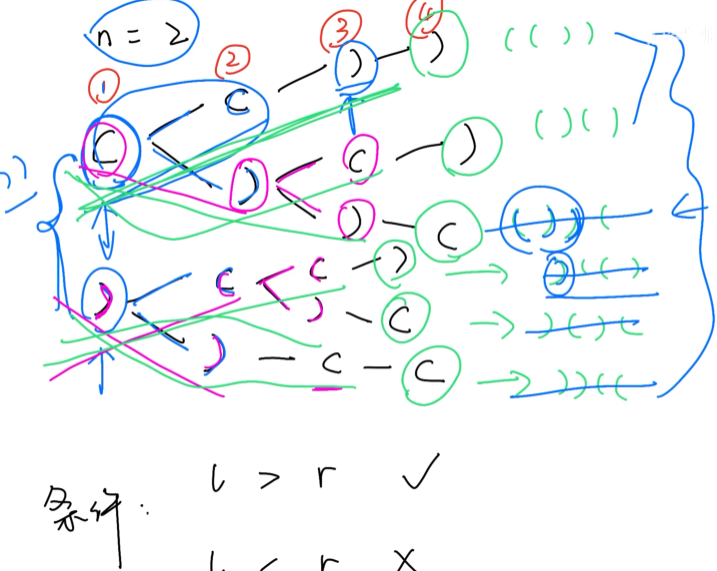 n = 2
① ② ③ ④
( ( ) ) (())
( ) ()()
( ) ( ())(
( ( ) )(()
) ( )()(
) ( ( ))((
条件: l > r ✓
l < r ×